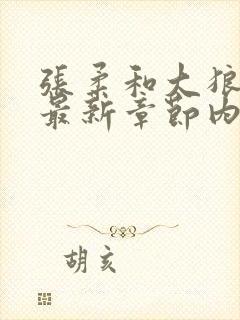 張柔和大狼
最新章節內
胡亥